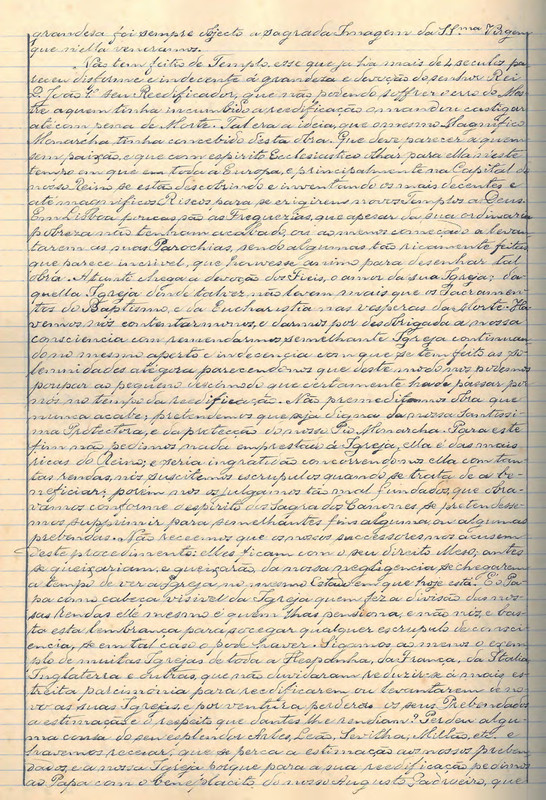 grandesa foi sempre objecto a sagrada Imagem da SS.ma Virgem
que n'ella veneramos.
Não tem feitio de Templo, esse que já ha mais de 4 seculos pa-
receu disforme e indecente á grandeza e devoção do senhor Rei
D. João 1º seu Reedificador, que não podendo soffrer o erro do Mes-
tre a quem tinha incumbido a reedificação o mandou castigar
até com penna de Morte. Tal era a ideia, que o mesmo Magnifico
Monarcha tinha concebido d'esta Obra. Que deve parecer a quem
sem paixão, e que com espirito Ecclesiastico olhar para ella n'este
tempo em que em toda a Europa, e principalmente na Capital do
nosso Reino se estão descobrindo e inventando os mais decentes e
até magnificos Riscos para se erigirem novos Templos a Deus.
Em Lisboa poucas são as Freguezias, que apesar da sua ordinaria
pobreza não tenham acabado, ou ao menos começado a levan-
tarem as suas Parochias, sendo algumas tão ricamente feitas
que parece incrivel, que houvesse animo para desenhar tal
obra. A tanto chega a devoção dos Fieis, o amor da sua Igreja; da-
quella Igreja d'onde talvez não levam mais que os Sacramen-
tos do Baptismo, e da Eucharistia nas vesperas da Morte. Ha-
vemos nós contentarmo-nos, e darmos por desobrigada a nossa
consciencia com remendarmos semelhante Igreja continuan-
do no mesmo aperto e indecencia com que se tem feito as so-
lemnidades até gora parecendo-nos que d'este modo nos podemos
poupar ao pequeno incomodo que certamente ha de passar por
nós no tempo da reedificação. Não premeditamos Obra que
nunca acabe; pretendemos que seja digna da nossa Santissi-
ma Protectora, e da proteção do nosso Pio Monarcha. Para este
fim não pedimos nada emprestado á Igreja, ella é das mais
ricas do Reino; e seria ingratidão concorrendo-nos ella com tan-
tas rendas, nós suscitemos escrupulos quando se trata de a be-
neficiar; porém nós os julgamos tão mal fundados, que obra-
vamos conforme o espirito dos Sagrados Canones, se pretendesse-
mos supprimir para semelhantes fins alguma, ou algumas
prebendas. Não receemos que os nossos successores nos acusem
d'este procedimento; elles ficam com o seu direito illeso, antes
se queixariam, e queixarão da nossa negligencia se chegarem
a tempo de ver a Igreja no mesmo Estado em que hoje está. É o Pa-
pa como cabeça visivel da Igreja quem fez a divisão das nos-
sas rendas elle mesmo é quem lhas pensiona, e não nós, e bas-
ta esta lembrança para socegar qualquer escrupulo de consci-
encia, se em tal caso o pode haver. Sigamos ao menos o exem-
plo de muitas Igrejas de toda a Hespanha, da França, da Italia
Inglaterra e outras, que não duvidaram reduzir-se á mais es-
treita parcimonia para reedificarem ou levantarem de no-
vo as suas Igrejas, e por ventura perderão os seus Prebendados
a estimação e o respeito que d'antes se lhe rendiam? Perdeu algu-
ma cousa do seu esplendor Arles, Leão, Sevilha, Milão, etc. e
havemos recear, que se perca a estimação aos nossos preben-
dados, e á nossa Igreja porque para a sua reedificação pedimos
ao Papa com o beneplacito do nosso Augusto Padroeiro, que